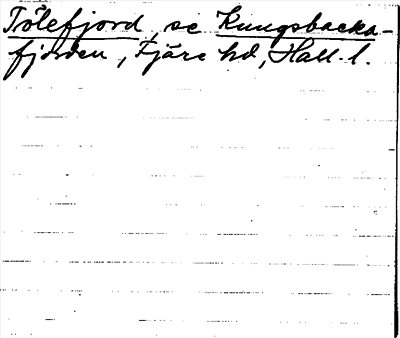 Tölefjord se Kungsbacka-
fjorden, Fjäre hd, Hall. l.